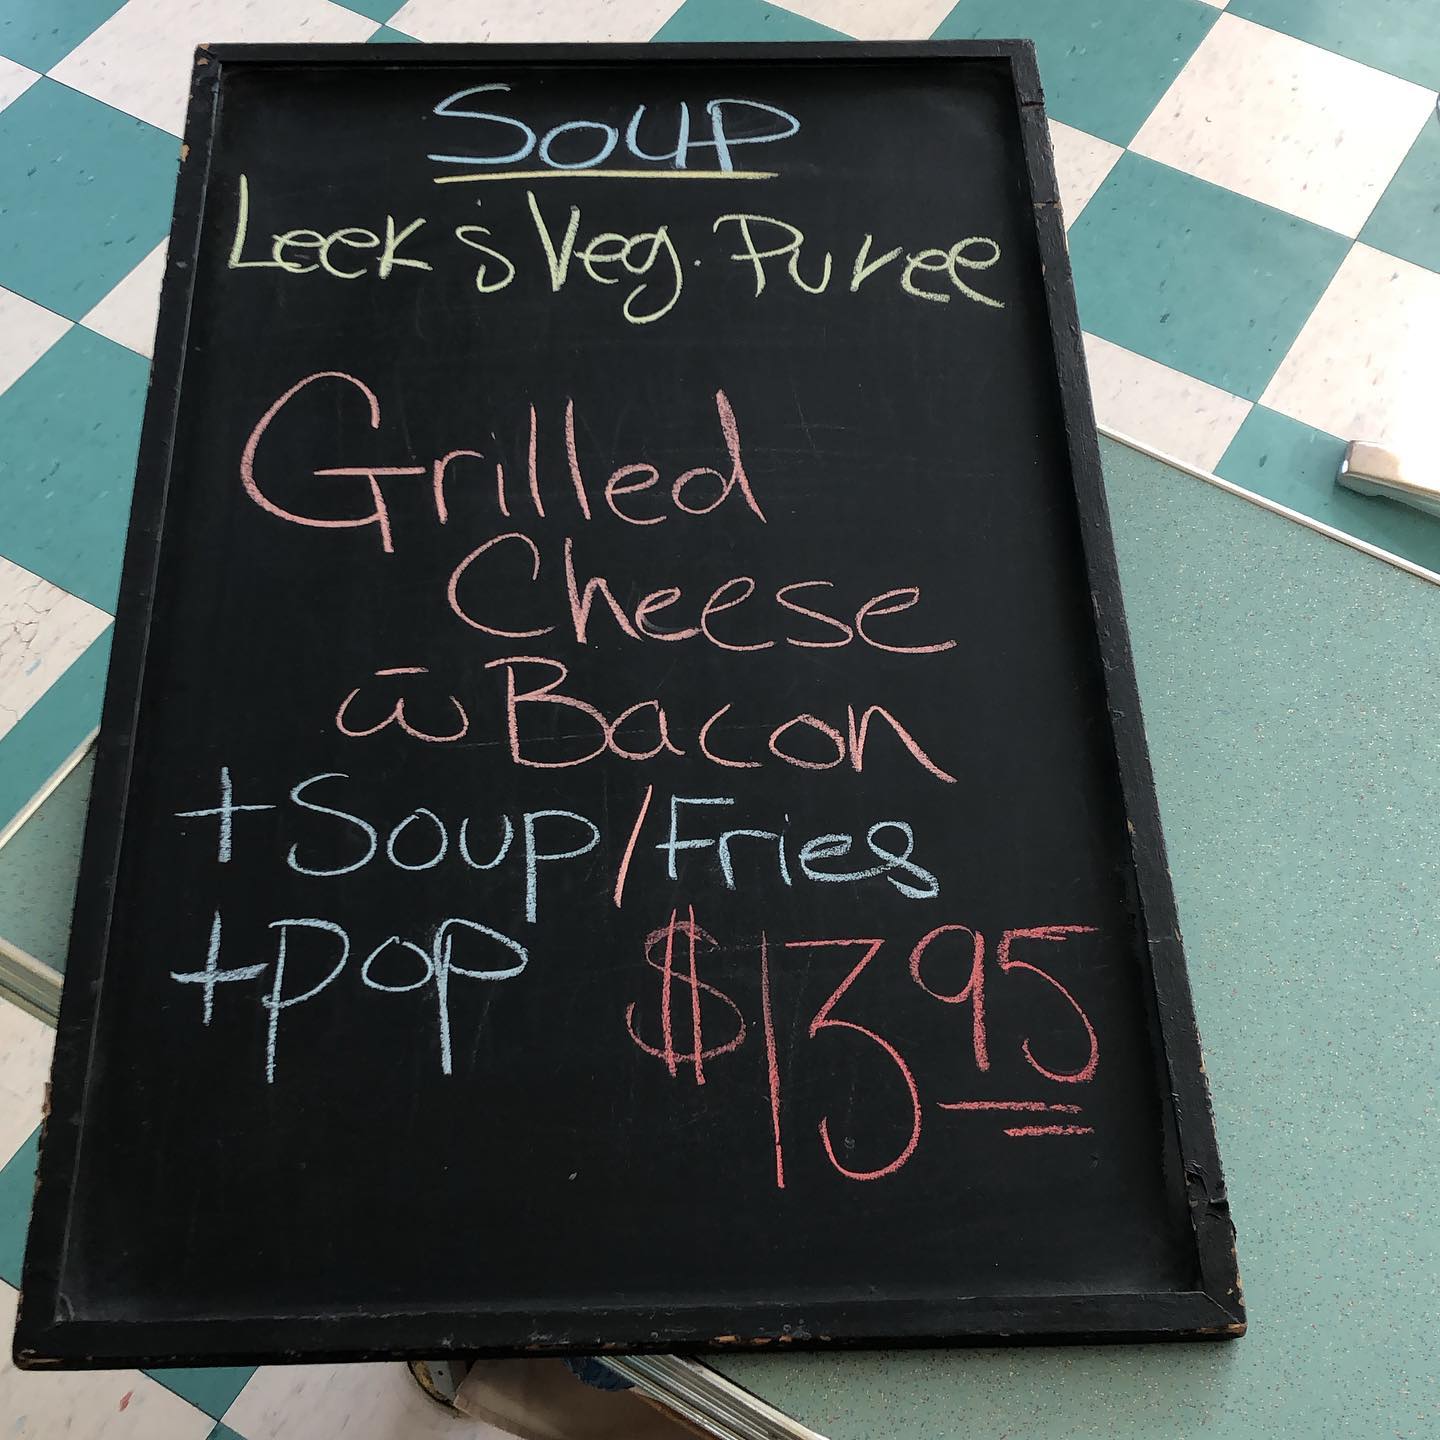 Soup
Leek & Veg. Puree
Grilled
Cheese
w̄ Bacon
+ Soup/Fries
+ pop $13.95